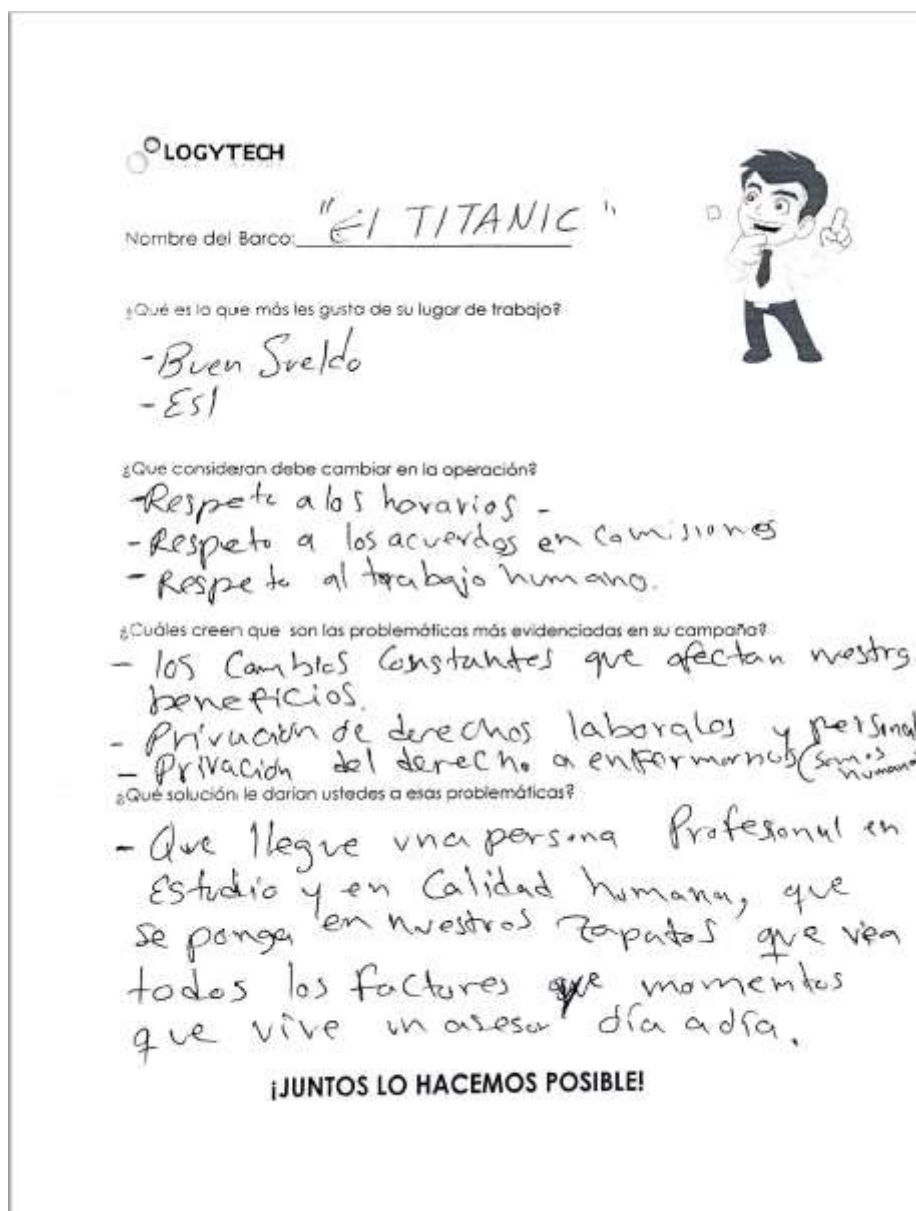 LOGYTECH
Nombre del Barco: "El TITANIC"
¿Qué es lo que más les gusta de su lugar de trabajo?
- Buen Sueldo
- ESl
¿Que consideran debe cambiar en la operación?
- Respeto a los horarios -
- Respeto a los acuerdos en comisiones
- Respeto al trabajo humano.
¿Cuáles creen que son las problemáticas más evidenciadas en su campaña?
- los Cambios Constantes que afectan nuestros
beneficios.
- Privación de derechos laborales y personal
- Privación del derecho a enfermarnos (somos
humanos
¿Qué solución le darían ustedes a esas problemáticas?
- Que llegue una persona Profesional en
Estudio y en Calidad humana, que
se ponga en nuestros zapatos que vea
todos los factores y momentos
que vive un asesor día a día.
¡JUNTOS LO HACEMOS POSIBLE!